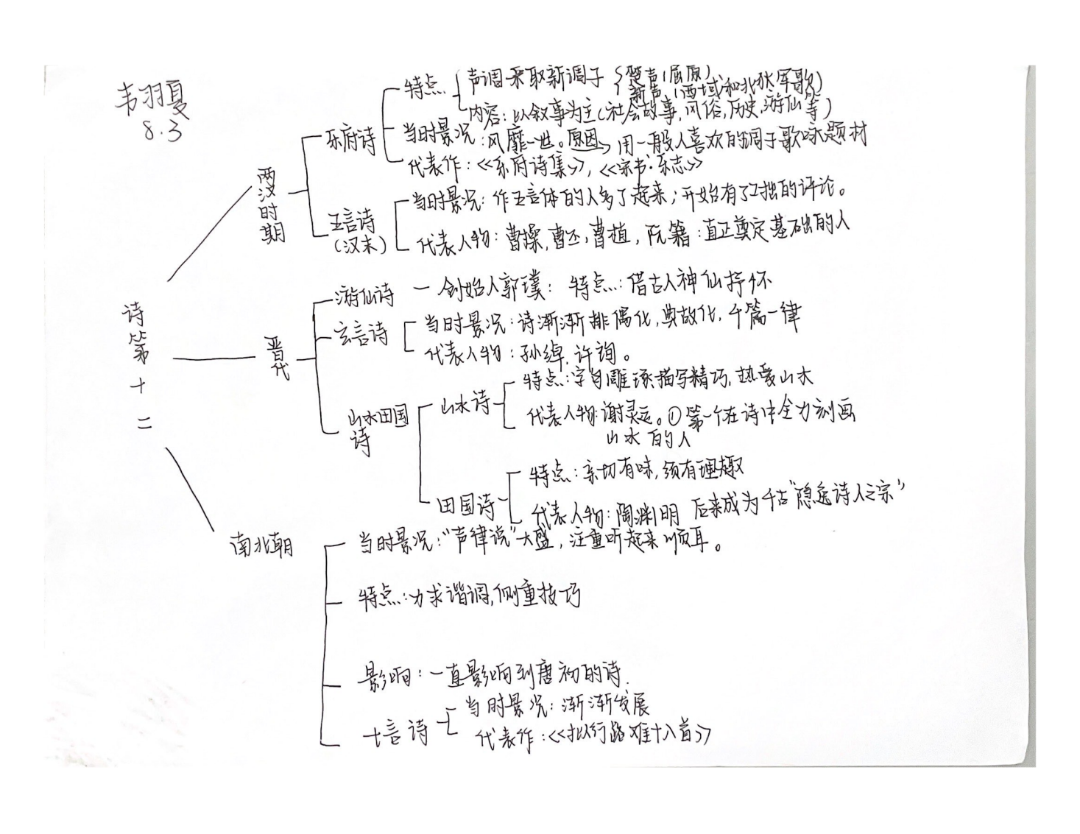 韦羽夏
8.3
诗第十二
两汉时期
乐府诗
特点
声调采取新调子
楚声(屈原)
新声(西域和北狄军歌)
内容:以叙事为主(社会故事,风俗,历史,游仙等)
当时景况:风靡一世。原因→用一般人喜欢的调子歌咏题材
代表作:《乐府诗集》,《宋书·乐志》
五言诗
(汉末)
当时景况:作五言体的人多了起来;开始有了工拙的评论。
代表人物:曹操,曹丕,曹植,阮籍:真正奠定基础的人
晋代
游仙诗
创始人郭璞:特点:借古人神仙抒怀
玄言诗
当时景况:诗渐渐排偶化,典故化,千篇一律
代表人物:孙绰,许询。
山水田园
诗
山水诗
特点:字句雕琢描写精巧,热爱山水
代表人物:谢灵运。①第一个在诗中全力刻画
山水的人
田园诗
特点:亲切有味,颇有理趣
代表人物:陶渊明 后来成为千古"隐逸诗人之宗"
南北朝
当时景况:"声律说"大盛,注重听起来顺耳。
特点:力求谐调,侧重技巧
影响:一直影响到唐初的诗.
七言诗
当时景况:渐渐发展
代表作:《拟行路难十八首》